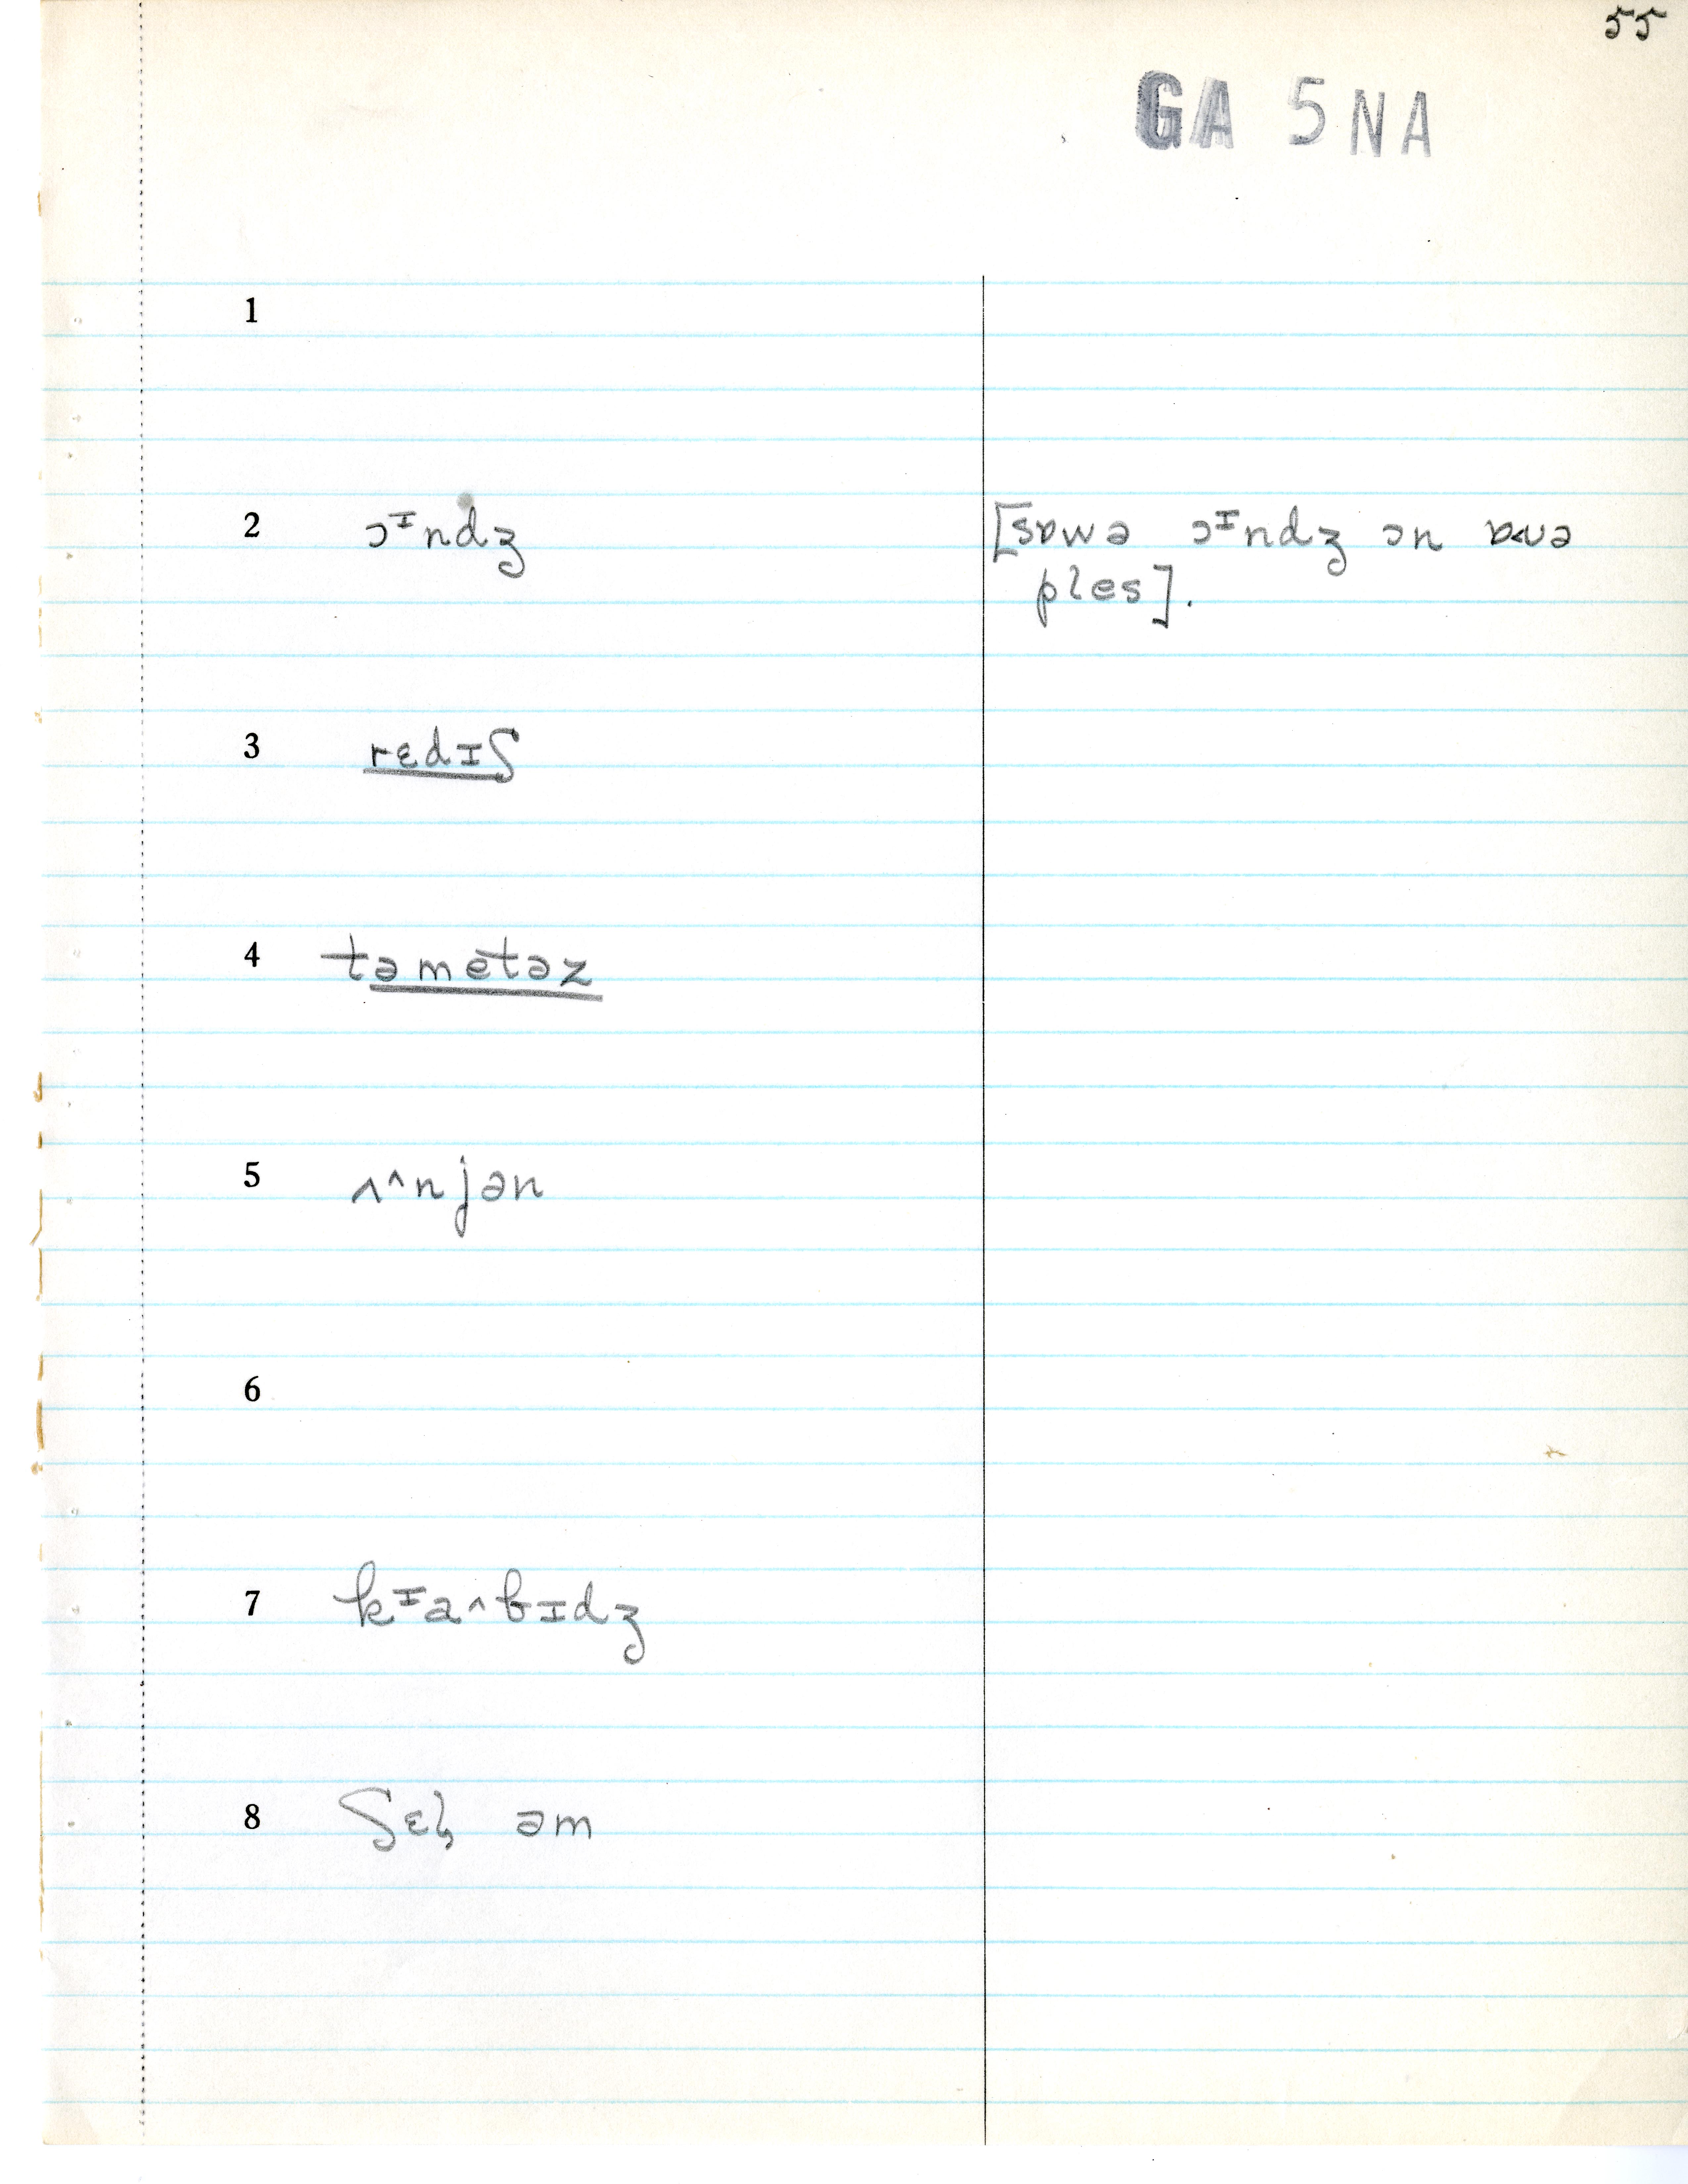 55
GA 5NA
1
2 ɔᶦndʒ [sɒwə ɔᶦndʒ ɔn
ples].
3 rɛdɪʃ
4 təmetəz
5 ʌ^njən
6
7 kᶦa^bɪdʒ
8 ʃɛɫ əm